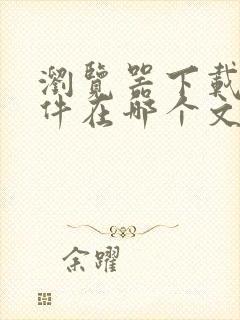 瀏覽器下載
件在哪个文
余躍